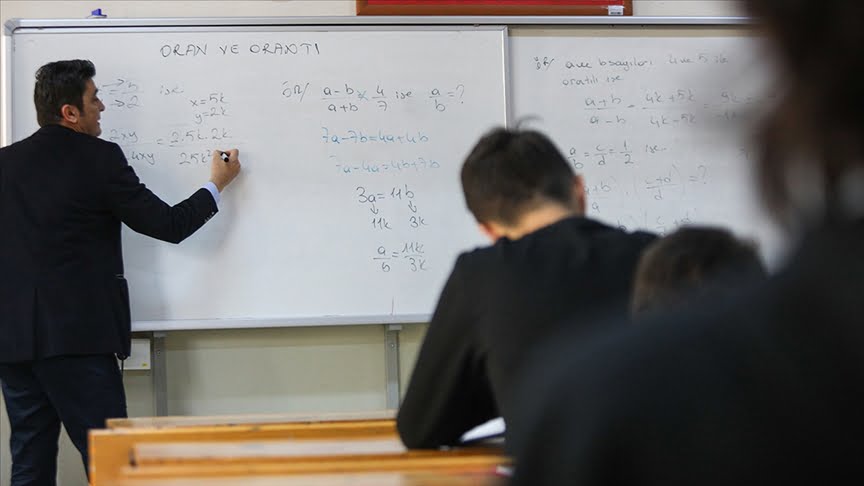 ORAN VE ORANTI
x = 5k
y = 2k
ise
2xy
4xy
= 2.5k.2k
25k²
ÖR/ a-b / a+b = 4/7 ise a/b = ?
7a-7b=4a+4b
7a-4a=4b+7b
3a=11b
11k 3k
a/b = 11k/3k
ÖR/ a ve b sayıları 4 ve 5 ile
orantılı ise
a+b / a-b = 4k+5k / 4k-5k =
a/b = c/d = 1/2 ise